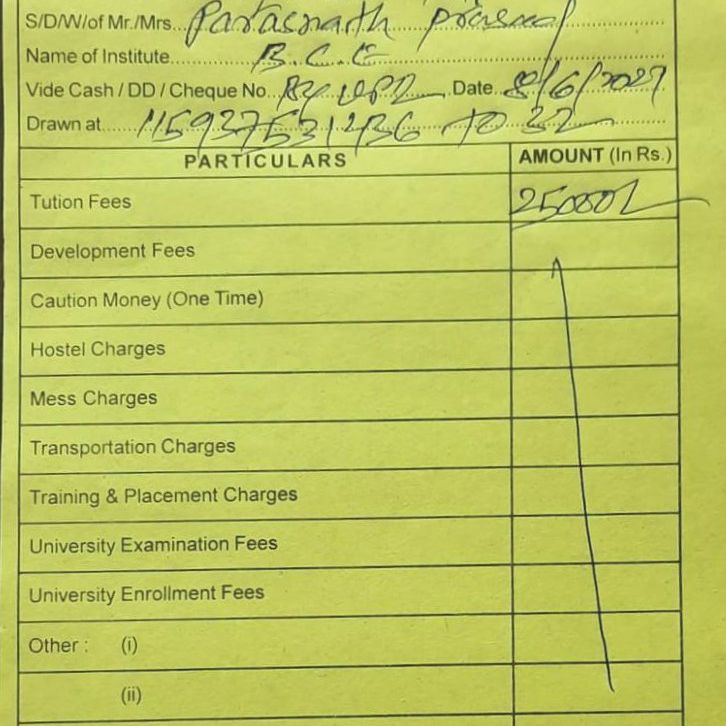 S/D/W/of Mr./Mrs. Parasnath prasad
Name of Institute B.C.E
Vide Cash / DD / Cheque No. By UPI Date 8/6/2027
Drawn at 115937531236 TO 22
PARTICULARS AMOUNT (In Rs.)
Tution Fees 25000/
Development Fees
Caution Money (One Time)
Hostel Charges
Mess Charges
Transportation Charges
Training & Placement Charges
University Examination Fees
University Enrollment Fees
Other : (i)
(ii)